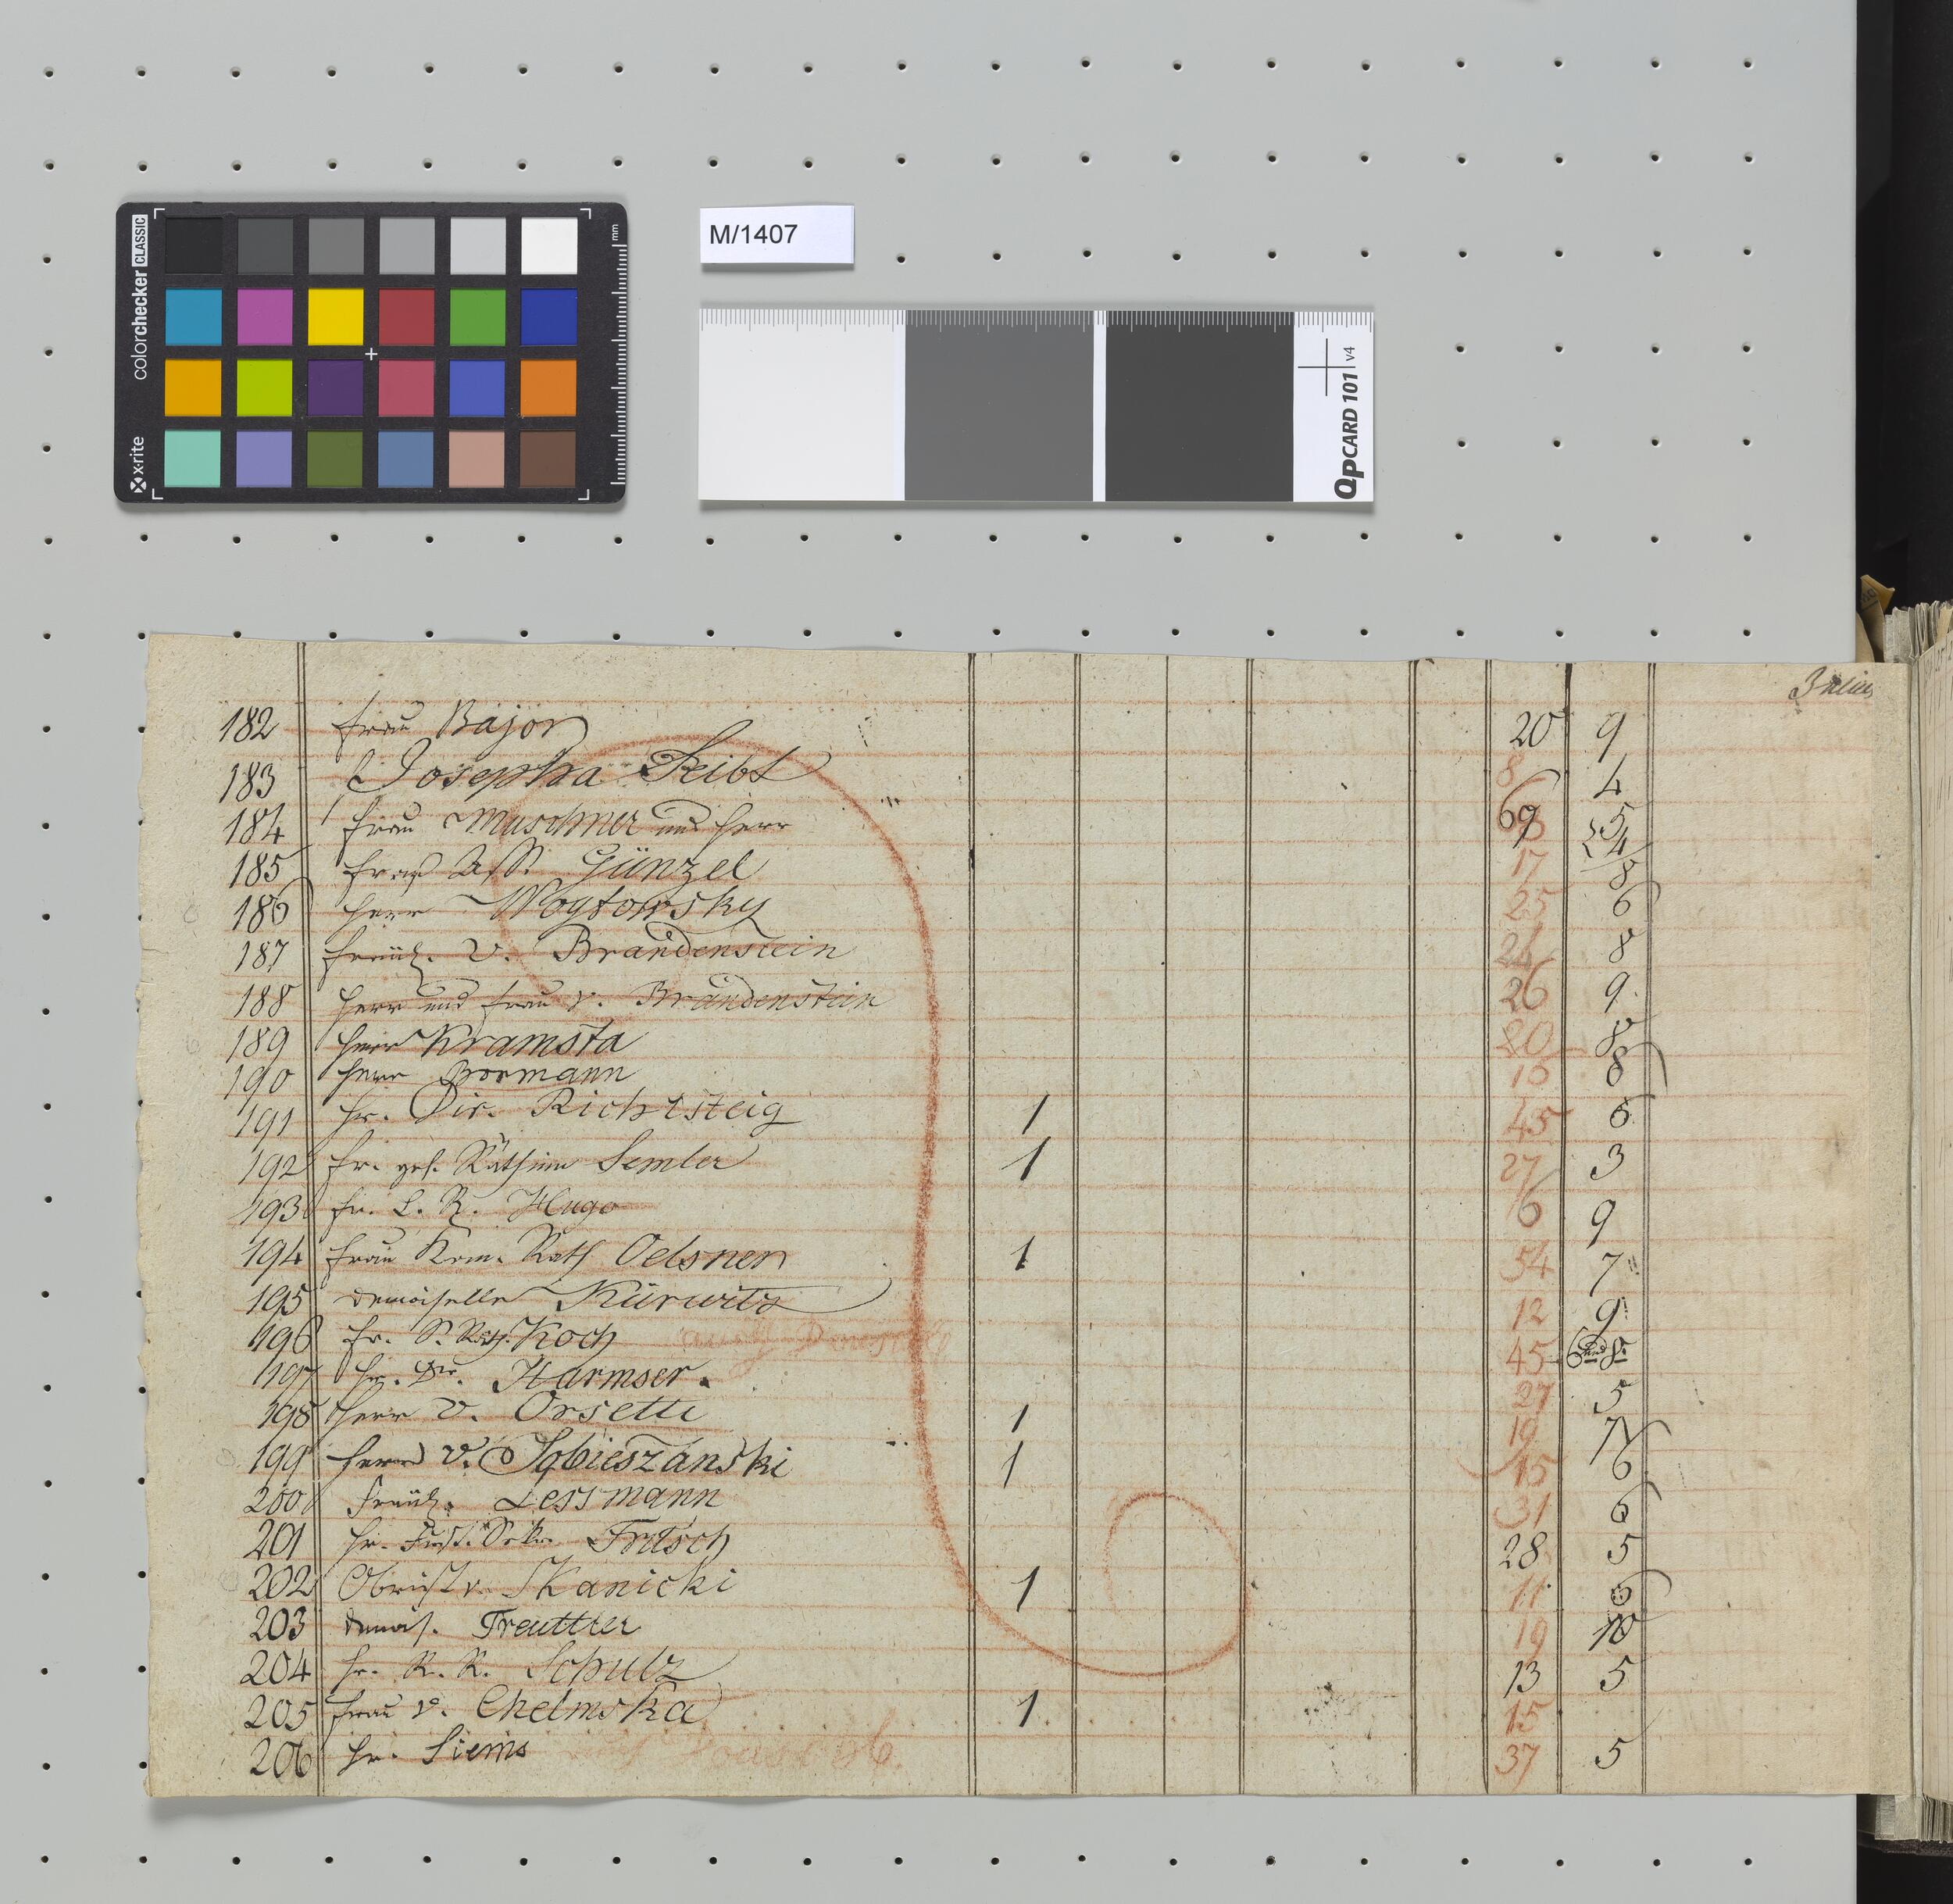 colorchecker CLASSIC
x-rite
mm
M/1407
QPCARD 101 v4
182 Frau Bajor 20 9
183 Josepha Seibt 8 4
184 Frau Muschner und Herr 69 5 4
185 Frau Aſſ. Günzel 17 8
186 Herr Woytowsky 25 6
187 Fräul. v. Brandenstein 24 8
188 Herr und Frau v. Brandenstein 26 9
189 Herr Kramsta 20 8
190 Herr Bormann 16 8
191 Hr. Dir. Richtsteig 1 45 6
192 Fr. geh. Räthinn Semler 1 27 3
193 Fr. L. R. Hugo 16 9
194 Frau Kom. Rath Oelsner 1 54 7
195 Demoiselle Kürwitz 12 9
196 Fr. Rath. Koch 45 6 und 8
197 Hr. Dr. Harmser. 27 5
198 Herr v. Orsetti 1 19 7
199 Herr v. Sobieszanski 1 15 6
200 Fräul. Lessmann 31 6
201 Hr. Just. Sekr. Fritsch 28 5
202 Obrist v. Skanicki 1 11 6
203 Demois. Treuttler 19 10
204 Hr. R. R. Schulz 13 5
205 Frau v. Chelmska 1 15
206 Hr. Siems 37 5